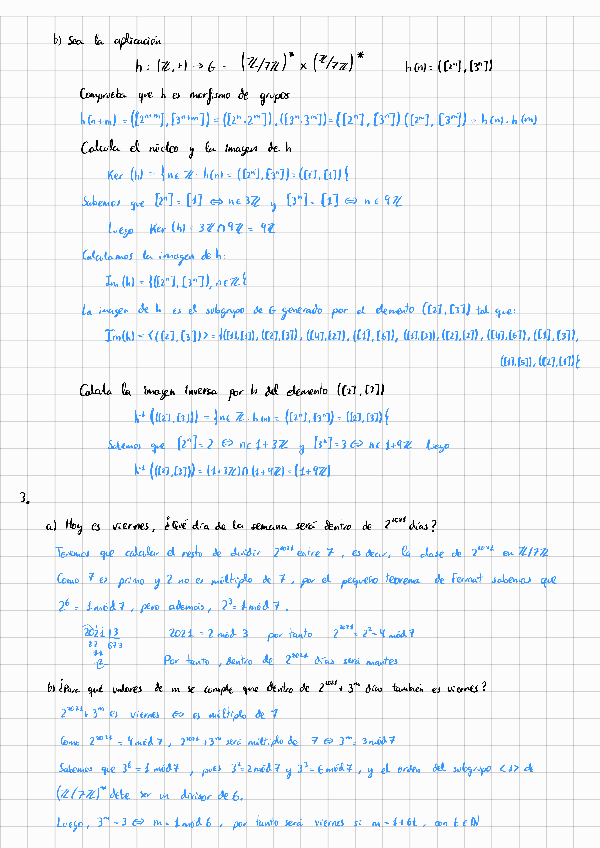 b) Sea la aplicación
h: (ℤ,+) → G = (ℤ/7ℤ)* × (ℤ/7ℤ)* h(n) = ([2ⁿ], [3ⁿ])
Comprueba que h es morfismo de grupos
h(n+m) = ([2ⁿ⁺ᵐ], [3ⁿ⁺ᵐ]) = ([2ⁿ·2ᵐ]), ([3ⁿ·3ᵐ]) = ([2ⁿ], [3ⁿ]) ([2ᵐ], [3ᵐ]) = h(n)·h(m)
Calcula el núcleo y la imagen de h
Ker (h) = {n∈ℤ : h(n) = ([2ⁿ], [3ⁿ]) = ([1], [1])}
Sabemos que [2ⁿ] = [1] ⇔ n∈3ℤ y [3ⁿ] = [1] ⇔ n∈9ℤ
Luego Ker (h) = 3ℤ∩9ℤ = 9ℤ
Calculamos la imagen de h:
Im(h) = {([2ⁿ], [3ⁿ]), n∈ℤ}
La imagen de h es el subgrupo de G generado por el elemento ([2], [3]) tal que:
Im(h) = <([2], [3])> = {([1],[1]), ([2],[3]), ([4],[2]), ([1],[6]),
Calcula la imagen inversa por h del elemento ([2], [3])
h⁻¹ (([2], [3])) = {n∈ℤ : h(n) = ([2ⁿ], [3ⁿ]) = ([2], [3])}
Sabemos que [2ⁿ] = 2 ⇔ n∈1+3ℤ y [3ⁿ] = 3 ⇔ n∈1+9ℤ luego
h⁻¹ (([2], [3])) = (1+3ℤ)∩(1+9ℤ) = (1+9ℤ)
3.
a) Hoy es viernes, ¿Qué día de la semana será dentro de 2²⁰²¹ días?
Tenemos que calcular el resto de dividir 2²⁰²¹ entre 7, es decir, la clase de 2²⁰²¹ en ℤ/7ℤ
Como 7 es primo y 2 no es múltiplo de 7, por el pequeño teorema de Fermat sabemos que
2⁶ = 1 mód 7, pero además, 2³ = 1 mód 7.
2021 |3 2021 = 2 mód 3 por tanto 2²⁰²¹ = 2² = 4 mód 7
22 673
11
2 Por tanto, dentro de 2²⁰²¹ días será martes
b) ¿Para qué valores de m se cumple que dentro de 2²⁰²¹ + 3ᵐ días también es viernes?
2²⁰²¹ + 3ᵐ es viernes ⇔ es múltiplo de 7
Como 2²⁰²¹ = 4 mód 7, 2²⁰²¹ + 3ᵐ será múltiplo de 7 ⇔ 3ᵐ = 3 mód 7
Sabemos que 3⁶ = 1 mód 7, pues 3² = 2 mód 7 y 3³ = 6 mód 7, y el orden del subgrupo <3> de
(ℤ/7ℤ)* debe ser un divisor de 6.
Luego, 3ᵐ = 3 ⇔ m = 1 mód 6, por tanto será viernes si m = 1+6t, con t∈ℕ